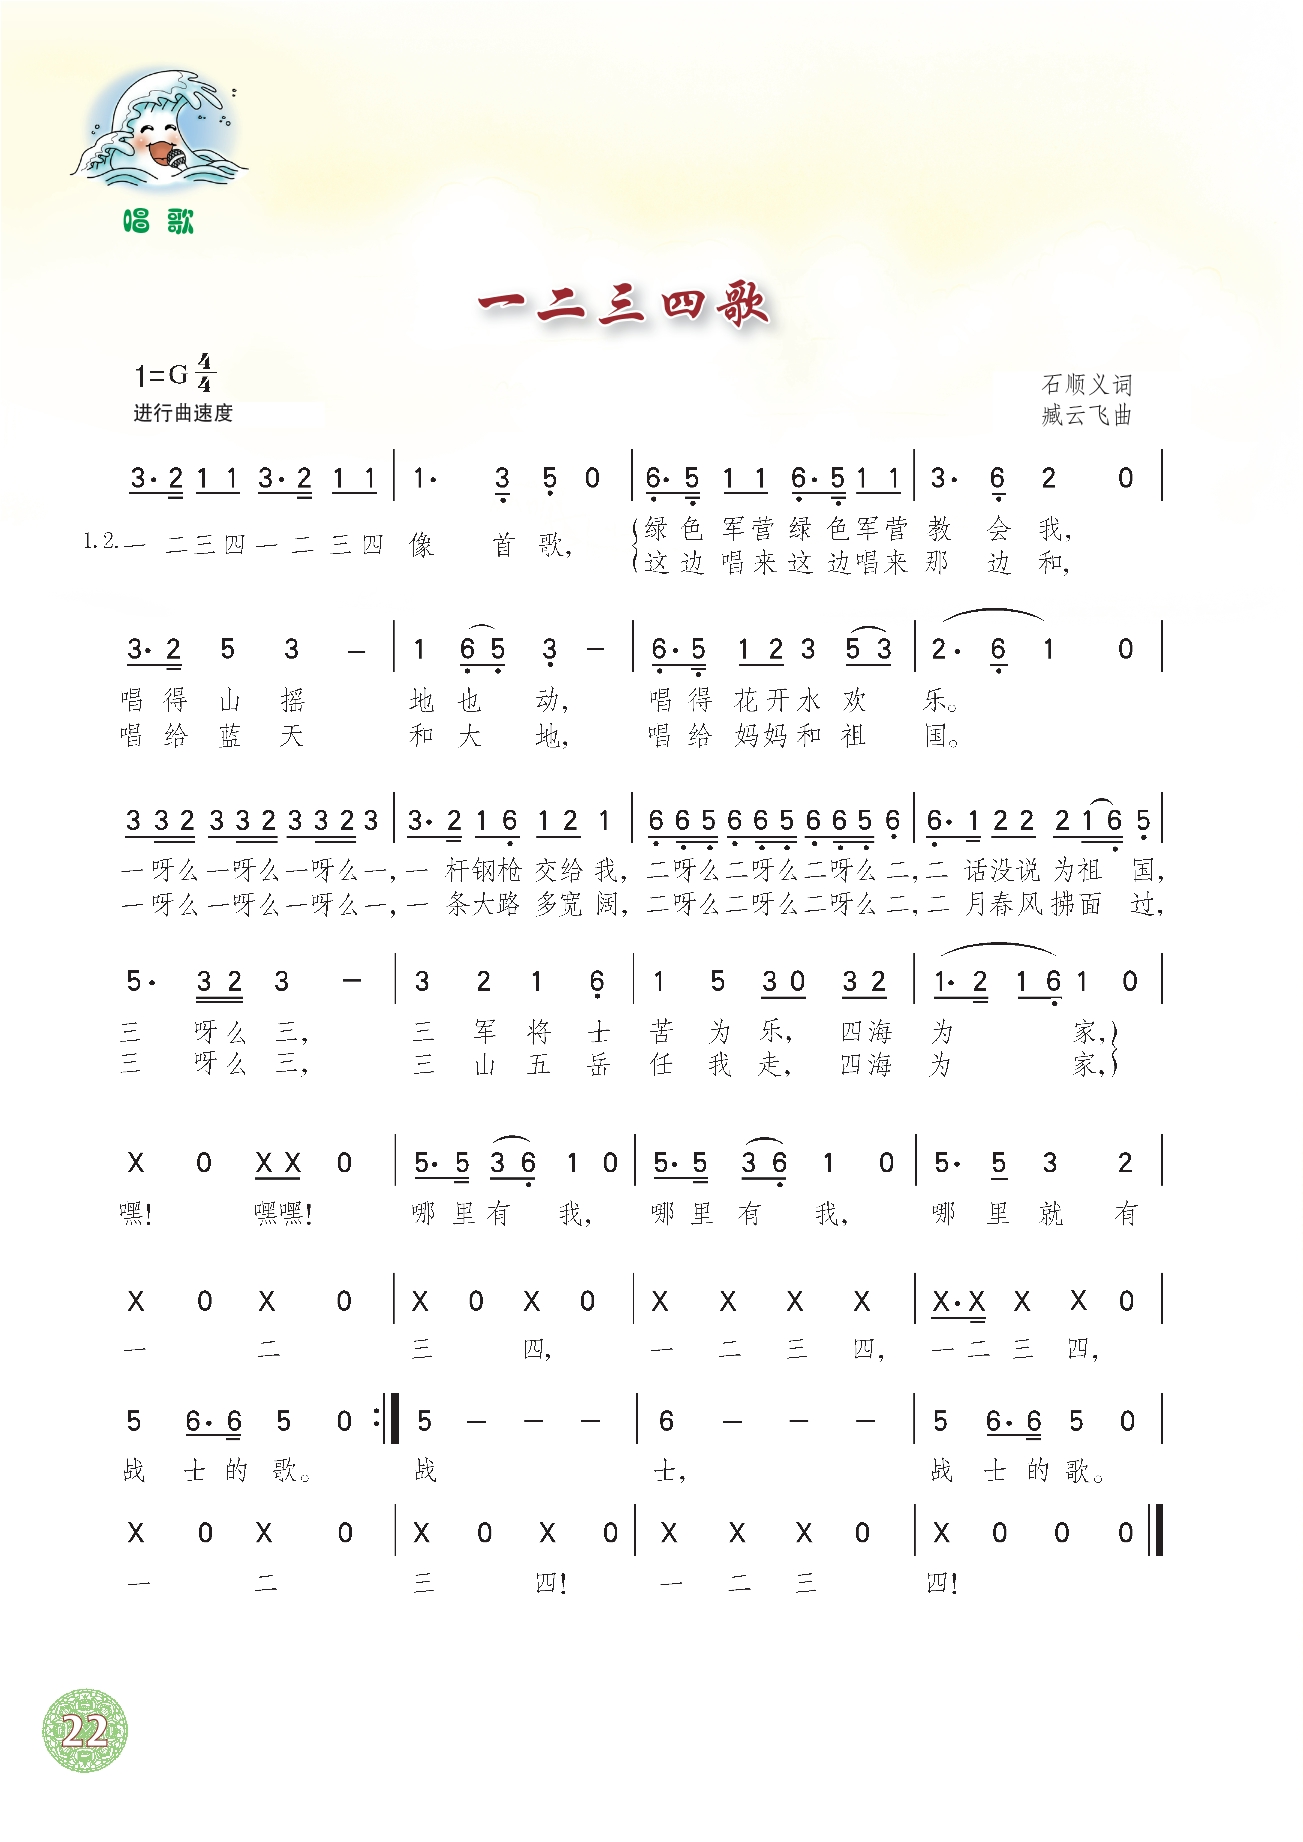 唱 歌
一二三四歌
1=G 4/4
石顺义词
进行曲速度
臧云飞曲
3· 2 1 1 3· 2 1 1 | 1· 3 5 0 | 6· 5 1 1 6· 5 1 1 | 3· 6 2 0 |
1.2.一 二三四一 二 三四 像 首 歌, 绿 色 军营 绿 色军营 教 会 我,
这 边 唱来 这 边唱来 那 边 和,
3· 2 5 3 — | 1 6 5 3 — | 6· 5 1 2 3 5 3 | 2· 6 1 0 |
唱 得 山 摇 地 也 动, 唱 得 花开水 欢 乐。
唱 给 蓝 天 和 大 地, 唱 给 妈妈和 祖 国。
3 3 2 3 3 2 3 3 2 3 | 3· 2 1 6 1 2 1 | 6 6 5 6 6 5 6 6 5 6 | 6· 1 2 2 2 1 6 5 |
一呀么一呀么一呀么一,一 杆钢枪 交给 我, 二呀么二呀么二呀么 二,二 话没说 为祖 国,
一呀么一呀么一呀么一,一 条大路 多宽 阔, 二呀么二呀么二呀么 二,二 月春风 拂面 过,
5· 3 2 3 — | 3 2 1 6 | 1 5 3 0 3 2 | 1· 2 1 6 1 0 |
三 呀么 三, 三 军 将 士 苦 为 乐, 四海 为 家,
三 呀么 三, 三 山 五 岳 任 我 走, 四海 为 家,
X 0 X X 0 | 5· 5 3 6 1 0 | 5· 5 3 6 1 0 | 5· 5 3 2
嘿! 嘿嘿! 哪 里 有 我, 哪 里 有 我, 哪 里 就 有
X 0 X 0 | X 0 X 0 | X X X X | X· X X X 0 |
一 二 三 四, 一 二 三 四, 一 二 三 四,
5 6· 6 5 0 :| 5 — — — | 6 — — — | 5 6· 6 5 0 |
战 士 的 歌。 战 士, 战 士 的 歌。
X 0 X 0 | X 0 X 0 | X X X 0 | X 0 0 0 ‖
一 二 三 四! 一 二 三 四!
22